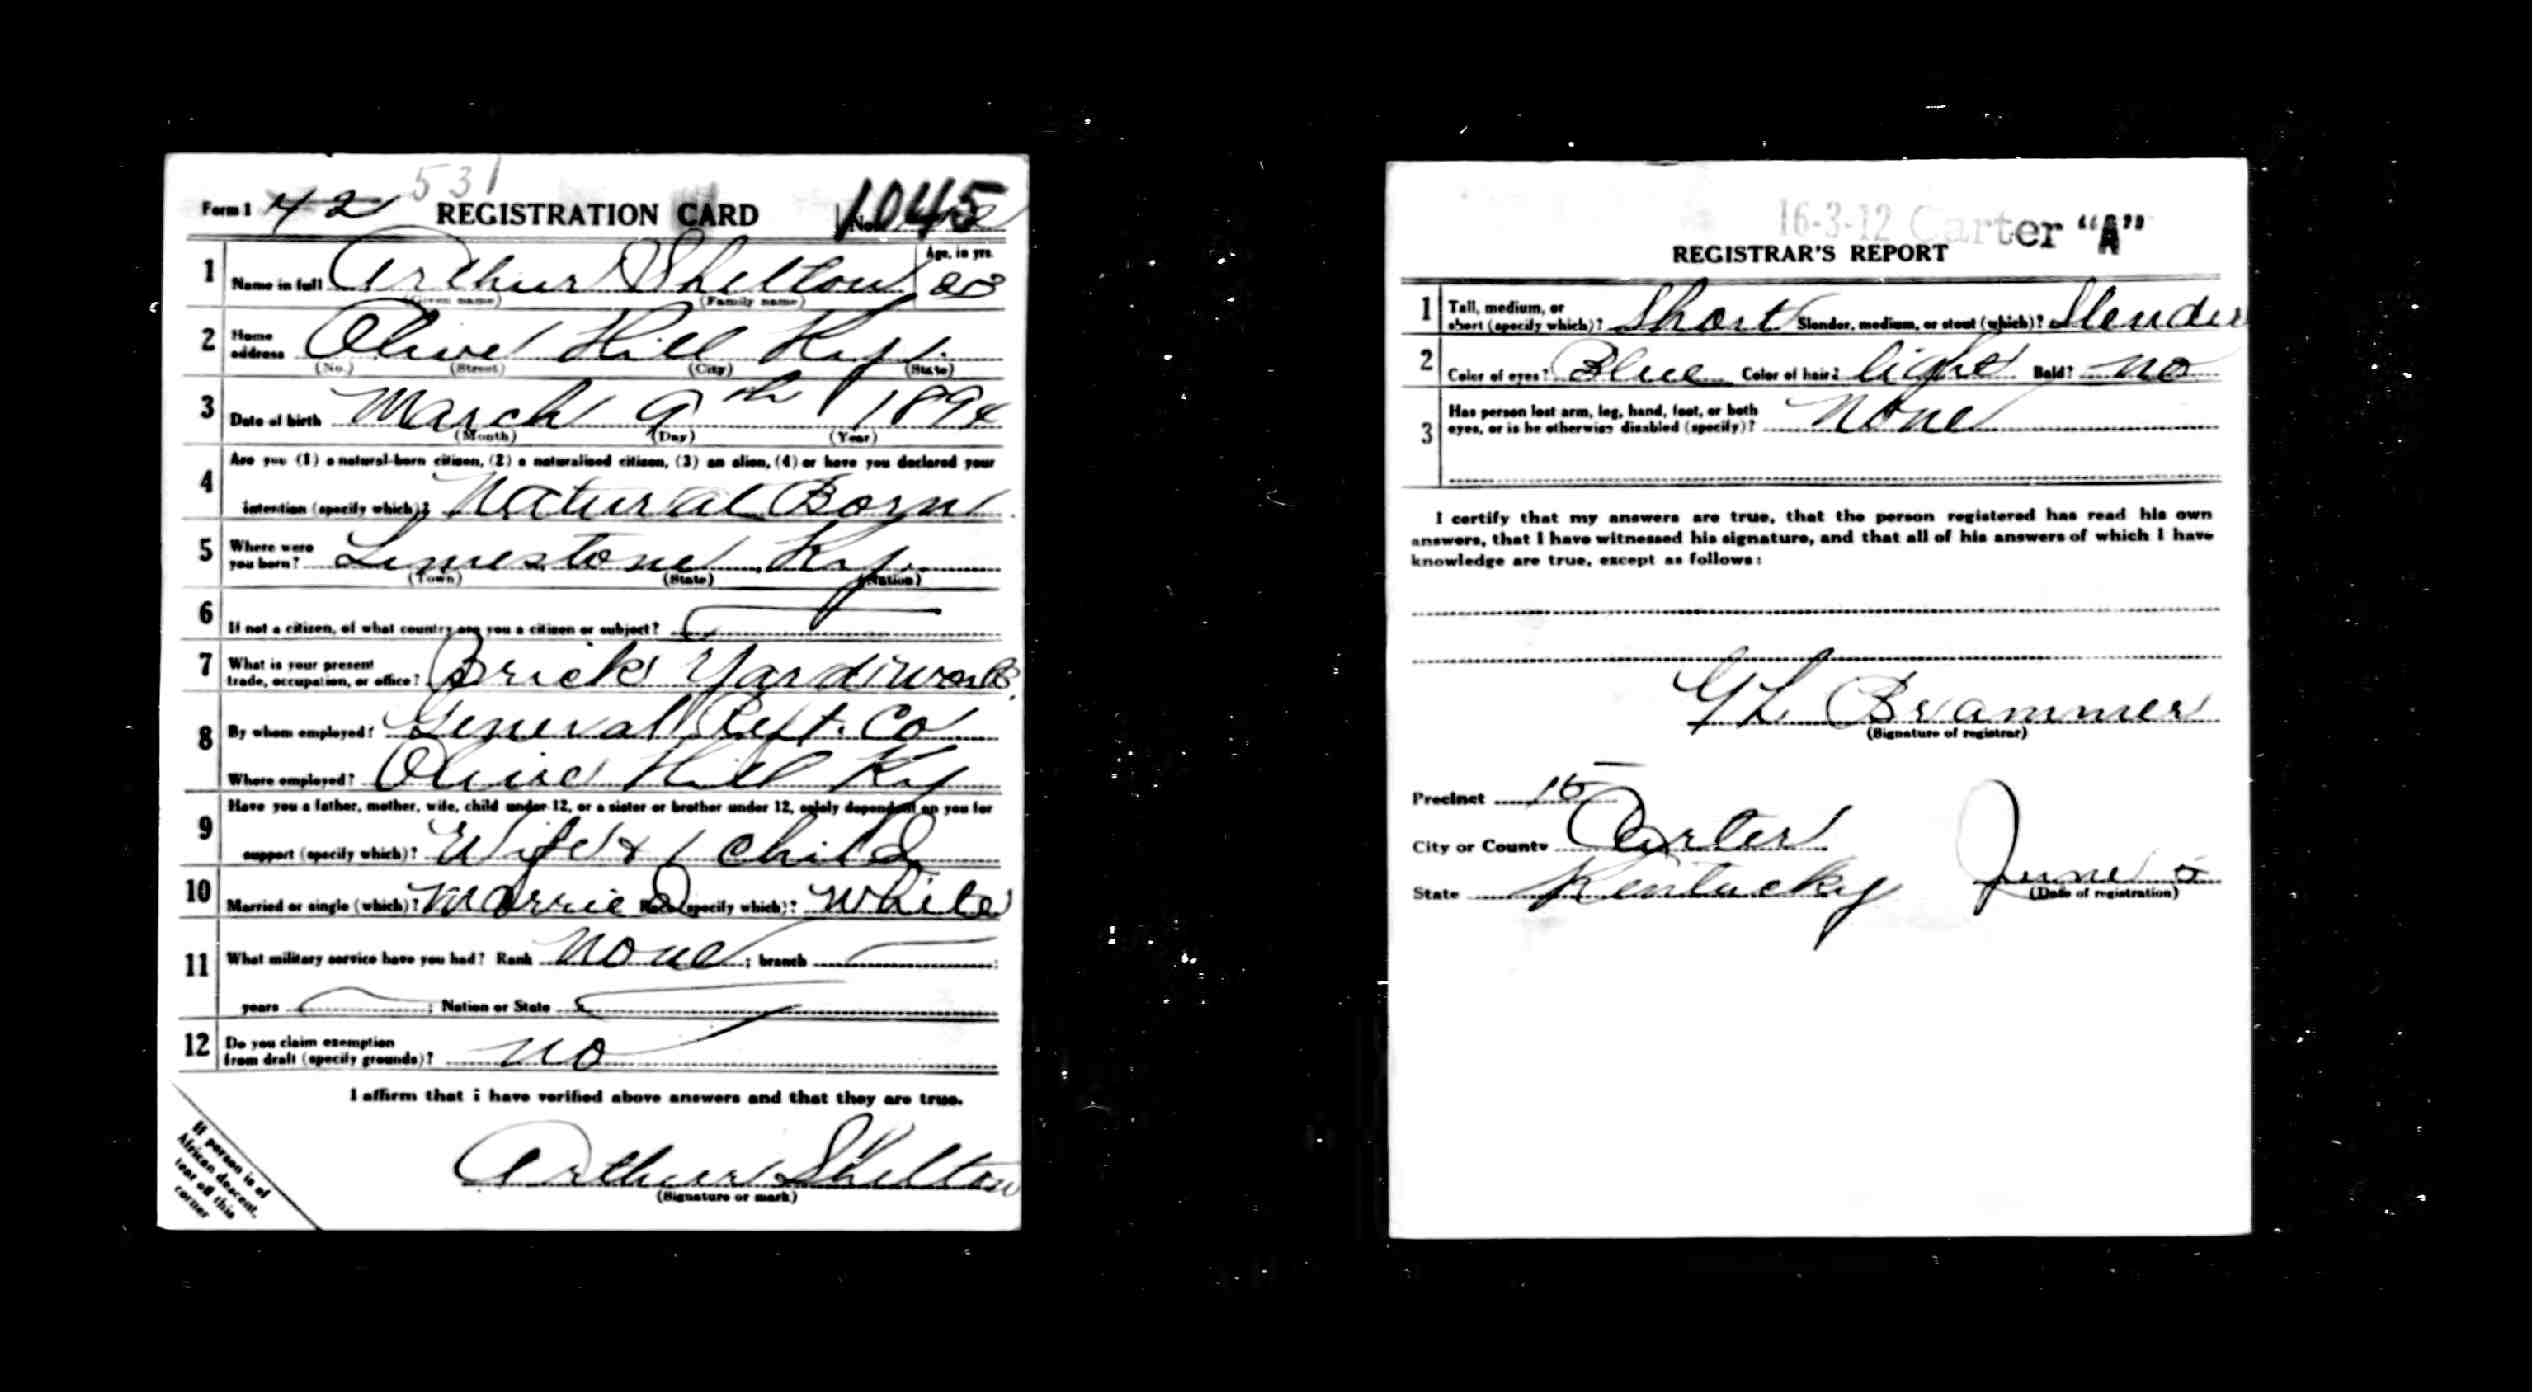 531
Form 1 42 REGISTRATION CARD No. 1045
1 Name in full Arthur Shelton Age, in yrs. 23
(Given name) (Family name)
2 Home address Olive Hill Ky.
(No.) (Street) (City) (State)
3 Date of birth March 9th 1894
(Month) (Day) (Year)
4 Are you (1) a natural-born citizen, (2) a naturalized citizen, (3) an alien, (4) or have you declared your
intention (specify which)? Natural Born
5 Where were you born? Limestone, Ky.
(Town) (State) (Nation)
6 If not a citizen, of what country are you a citizen or subject?
7 What is your present trade, occupation, or office? Brick Yard Work
8 By whom employed? General Reft. Co
Where employed? Olive Hill Ky
9 Have you a father, mother, wife, child under 12, or a sister or brother under 12, solely dependent on you for
support (specify which)? Wife & 1 child
10 Married or single (which)? Married Race (specify which)? White
11 What military service have you had? Rank None ; branch ;
years ; Nation or State
12 Do you claim exemption from draft (specify grounds)? no
I affirm that i have verified above answers and that they are true.
Arthur Shelton
(Signature or mark)
If person is of
African descent,
tear off this
corner
16-3-12 Carter "A"
REGISTRAR'S REPORT
1 Tall, medium, or short (specify which)? Short Slender, medium, or stout (which)? Slender
2 Color of eyes? Blue Color of hair? light Bald? no
3 Has person lost arm, leg, hand, foot, or both
eyes, or is he otherwise disabled (specify)? None
I certify that my answers are true, that the person registered has read his own
answers, that I have witnessed his signature, and that all of his answers of which I have
knowledge are true, except as follows:
G L Brammer
(Signature of registrar)
Precinct 15
City or County Carter
State Kentucky June 5
(Date of registration)